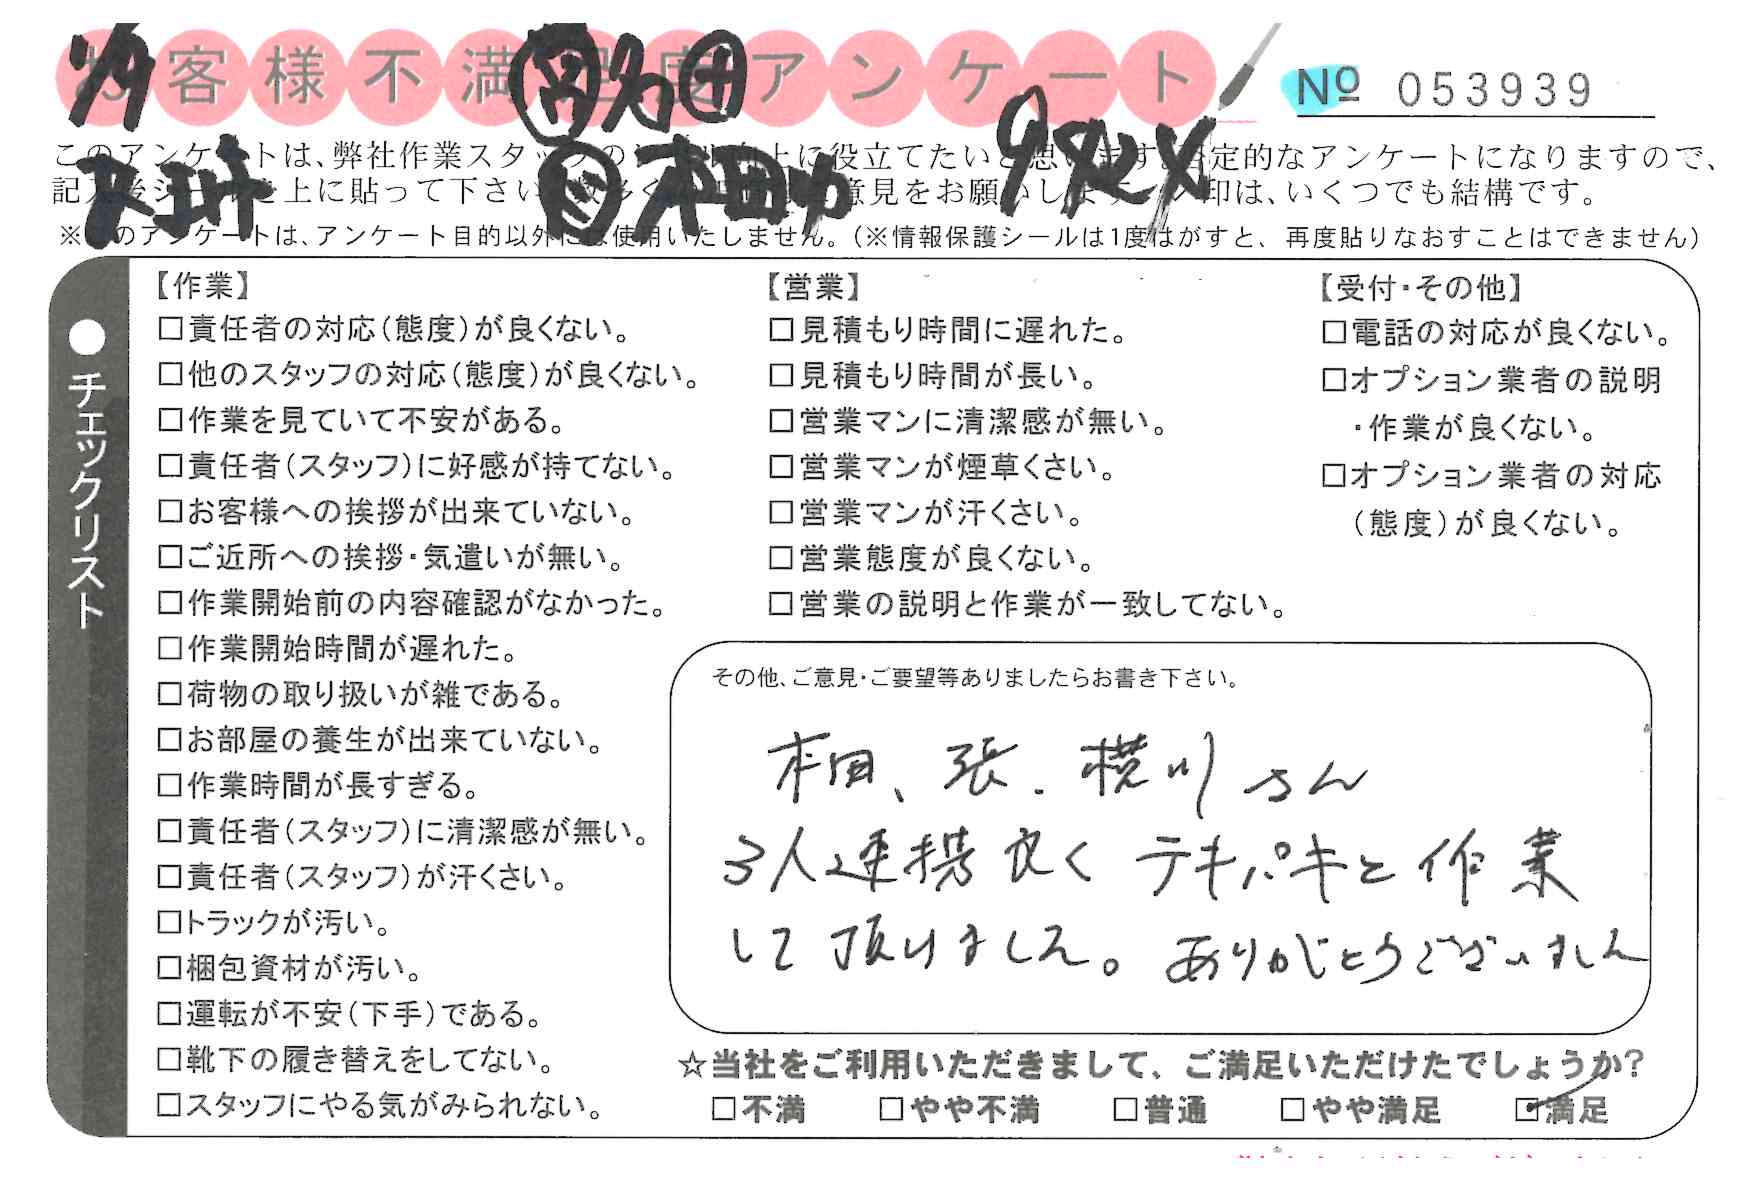 お客様不満足度アンケート
№ 053939
1/9
9482X
このアンケートは、弊社作業スタッフの に役立てたいと思います。否定的なアンケートになりますので、
記入後シールを上に貼って下さい。数多く ご意見をお願いします。レ印は、いくつでも結構です。
※このアンケートは、アンケート目的以外には使用いたしません。(※情報保護シールは1度はがすと、再度貼りなおすことはできません)
本田
●チェックリスト
【作業】
□責任者の対応(態度)が良くない。
□他のスタッフの対応(態度)が良くない。
□作業を見ていて不安がある。
□責任者(スタッフ)に好感が持てない。
□お客様への挨拶が出来ていない。
□ご近所への挨拶・気遣いが無い。
□作業開始前の内容確認がなかった。
□作業開始時間が遅れた。
□荷物の取り扱いが雑である。
□お部屋の養生が出来ていない。
□作業時間が長すぎる。
□責任者(スタッフ)に清潔感が無い。
□責任者(スタッフ)が汗くさい。
□トラックが汚い。
□梱包資材が汚い。
□運転が不安(下手)である。
□靴下の履き替えをしてない。
□スタッフにやる気がみられない。
【営業】
□見積もり時間に遅れた。
□見積もり時間が長い。
□営業マンに清潔感が無い。
□営業マンが煙草くさい。
□営業マンが汗くさい。
□営業態度が良くない。
□営業の説明と作業が一致してない。
【受付・その他】
□電話の対応が良くない。
□オプション業者の説明
・作業が良くない。
□オプション業者の対応
(態度)が良くない。
その他、ご意見・ご要望等ありましたらお書き下さい。
本田、張、横川さん
3人連携良くテキパキと作業
して頂けました。ありがとうございました
☆当社をご利用いただきまして、ご満足いただけたでしょうか?
□不満 □やや不満 □普通 □やや満足 ☑満足